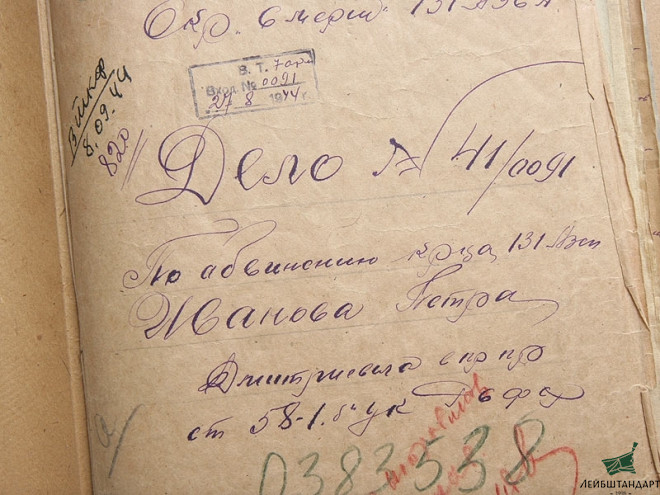 Окр. Смерш 131 АЗСП
В. Т. 7 арм
Вход. № 0091
27 8 1944
8.09.44
820
Дело № 41/0091
По обвинению кр-ца 131 Азсп
Иванова Петра
Дмитриевича в пр. пр.
ст 58-1. б" УК РСФСР
0383538
ЛЕЙБШТАНДАРТ